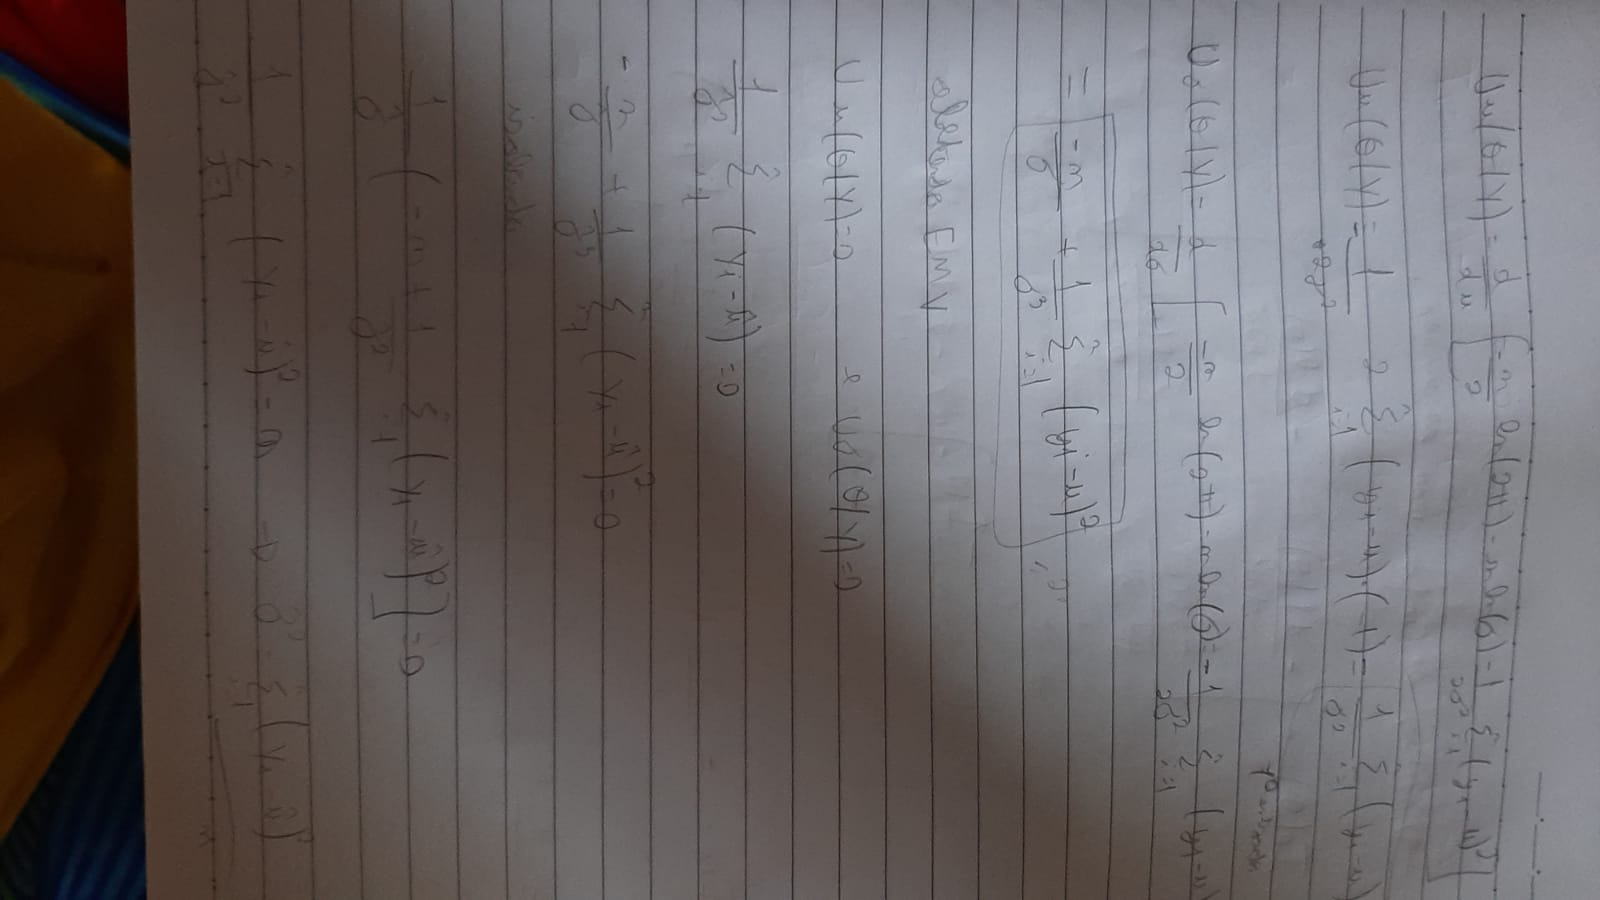 Uμ(θ|Y) = d/dμ [-n/2 ln(2π) - n ln(σ) - 1/2σ² Σ i=1 n (yi - μ)²]
Uμ(θ|Y) = 1/2σ² 2 Σ i=1 n (yi - μ)·(-1) = 1/σ² Σ i=1 n (yi - μ)
Uσ(θ|Y) = d/dσ [-n/2 ln(2π) - n ln(σ) = -1/2σ² Σ i=1 n (yi - μ)
= -n/σ + 1/σ³ Σ i=1 n (yi - μ)²
obtendo EMV
Uμ(θ|Y) = 0 e Uσ(θ|Y) = 0
1/σ̂² Σ i=1 n (Yi - μ̂) = 0
- n/σ̂ + 1/σ̂³ Σ i=1 n (Yi - μ̂)² = 0
isolando
1/σ̂ (-n + 1/σ̂² Σ i=1 n (Yi - μ̂)²] = 0
1/σ̂² Σ i=1 n (Yi - μ̂)² = n → σ̂² = Σ i=1 n (Yi - μ̂)²/n